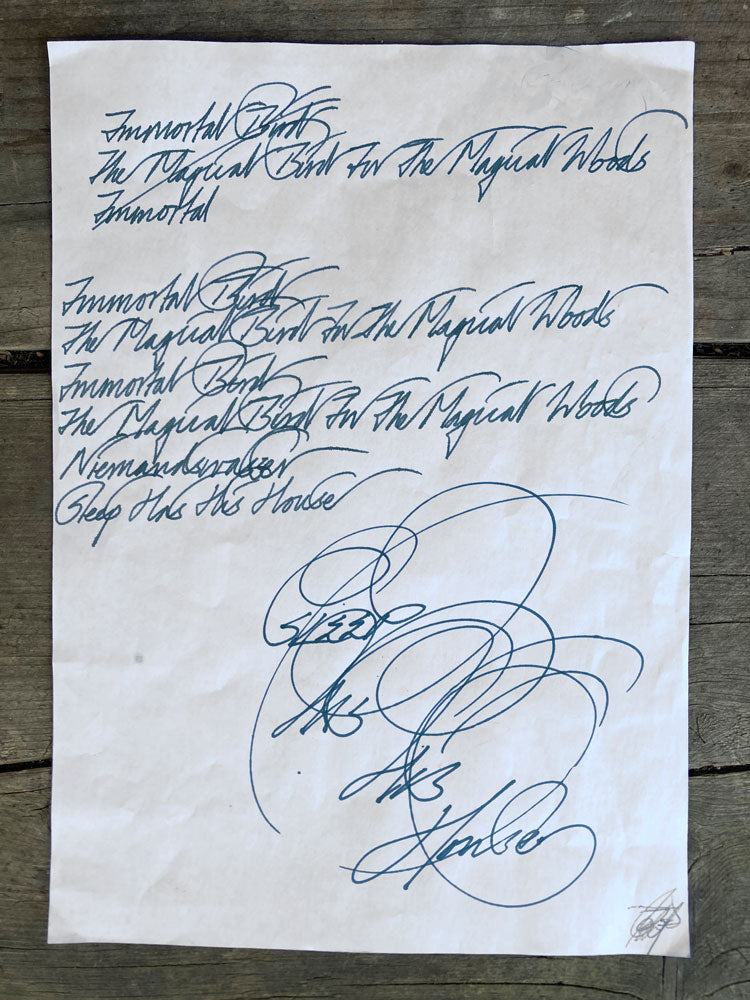 Immortal Bird
The Magical Bird In The Magical Woods
Immortal
Immortal Bird
The Magical Bird In The Magical Woods
Immortal Bird
The Magical Bird In The Magical Woods
Niemandswasser
Sleep Has His House
SLEEP
HAS
HIS
House